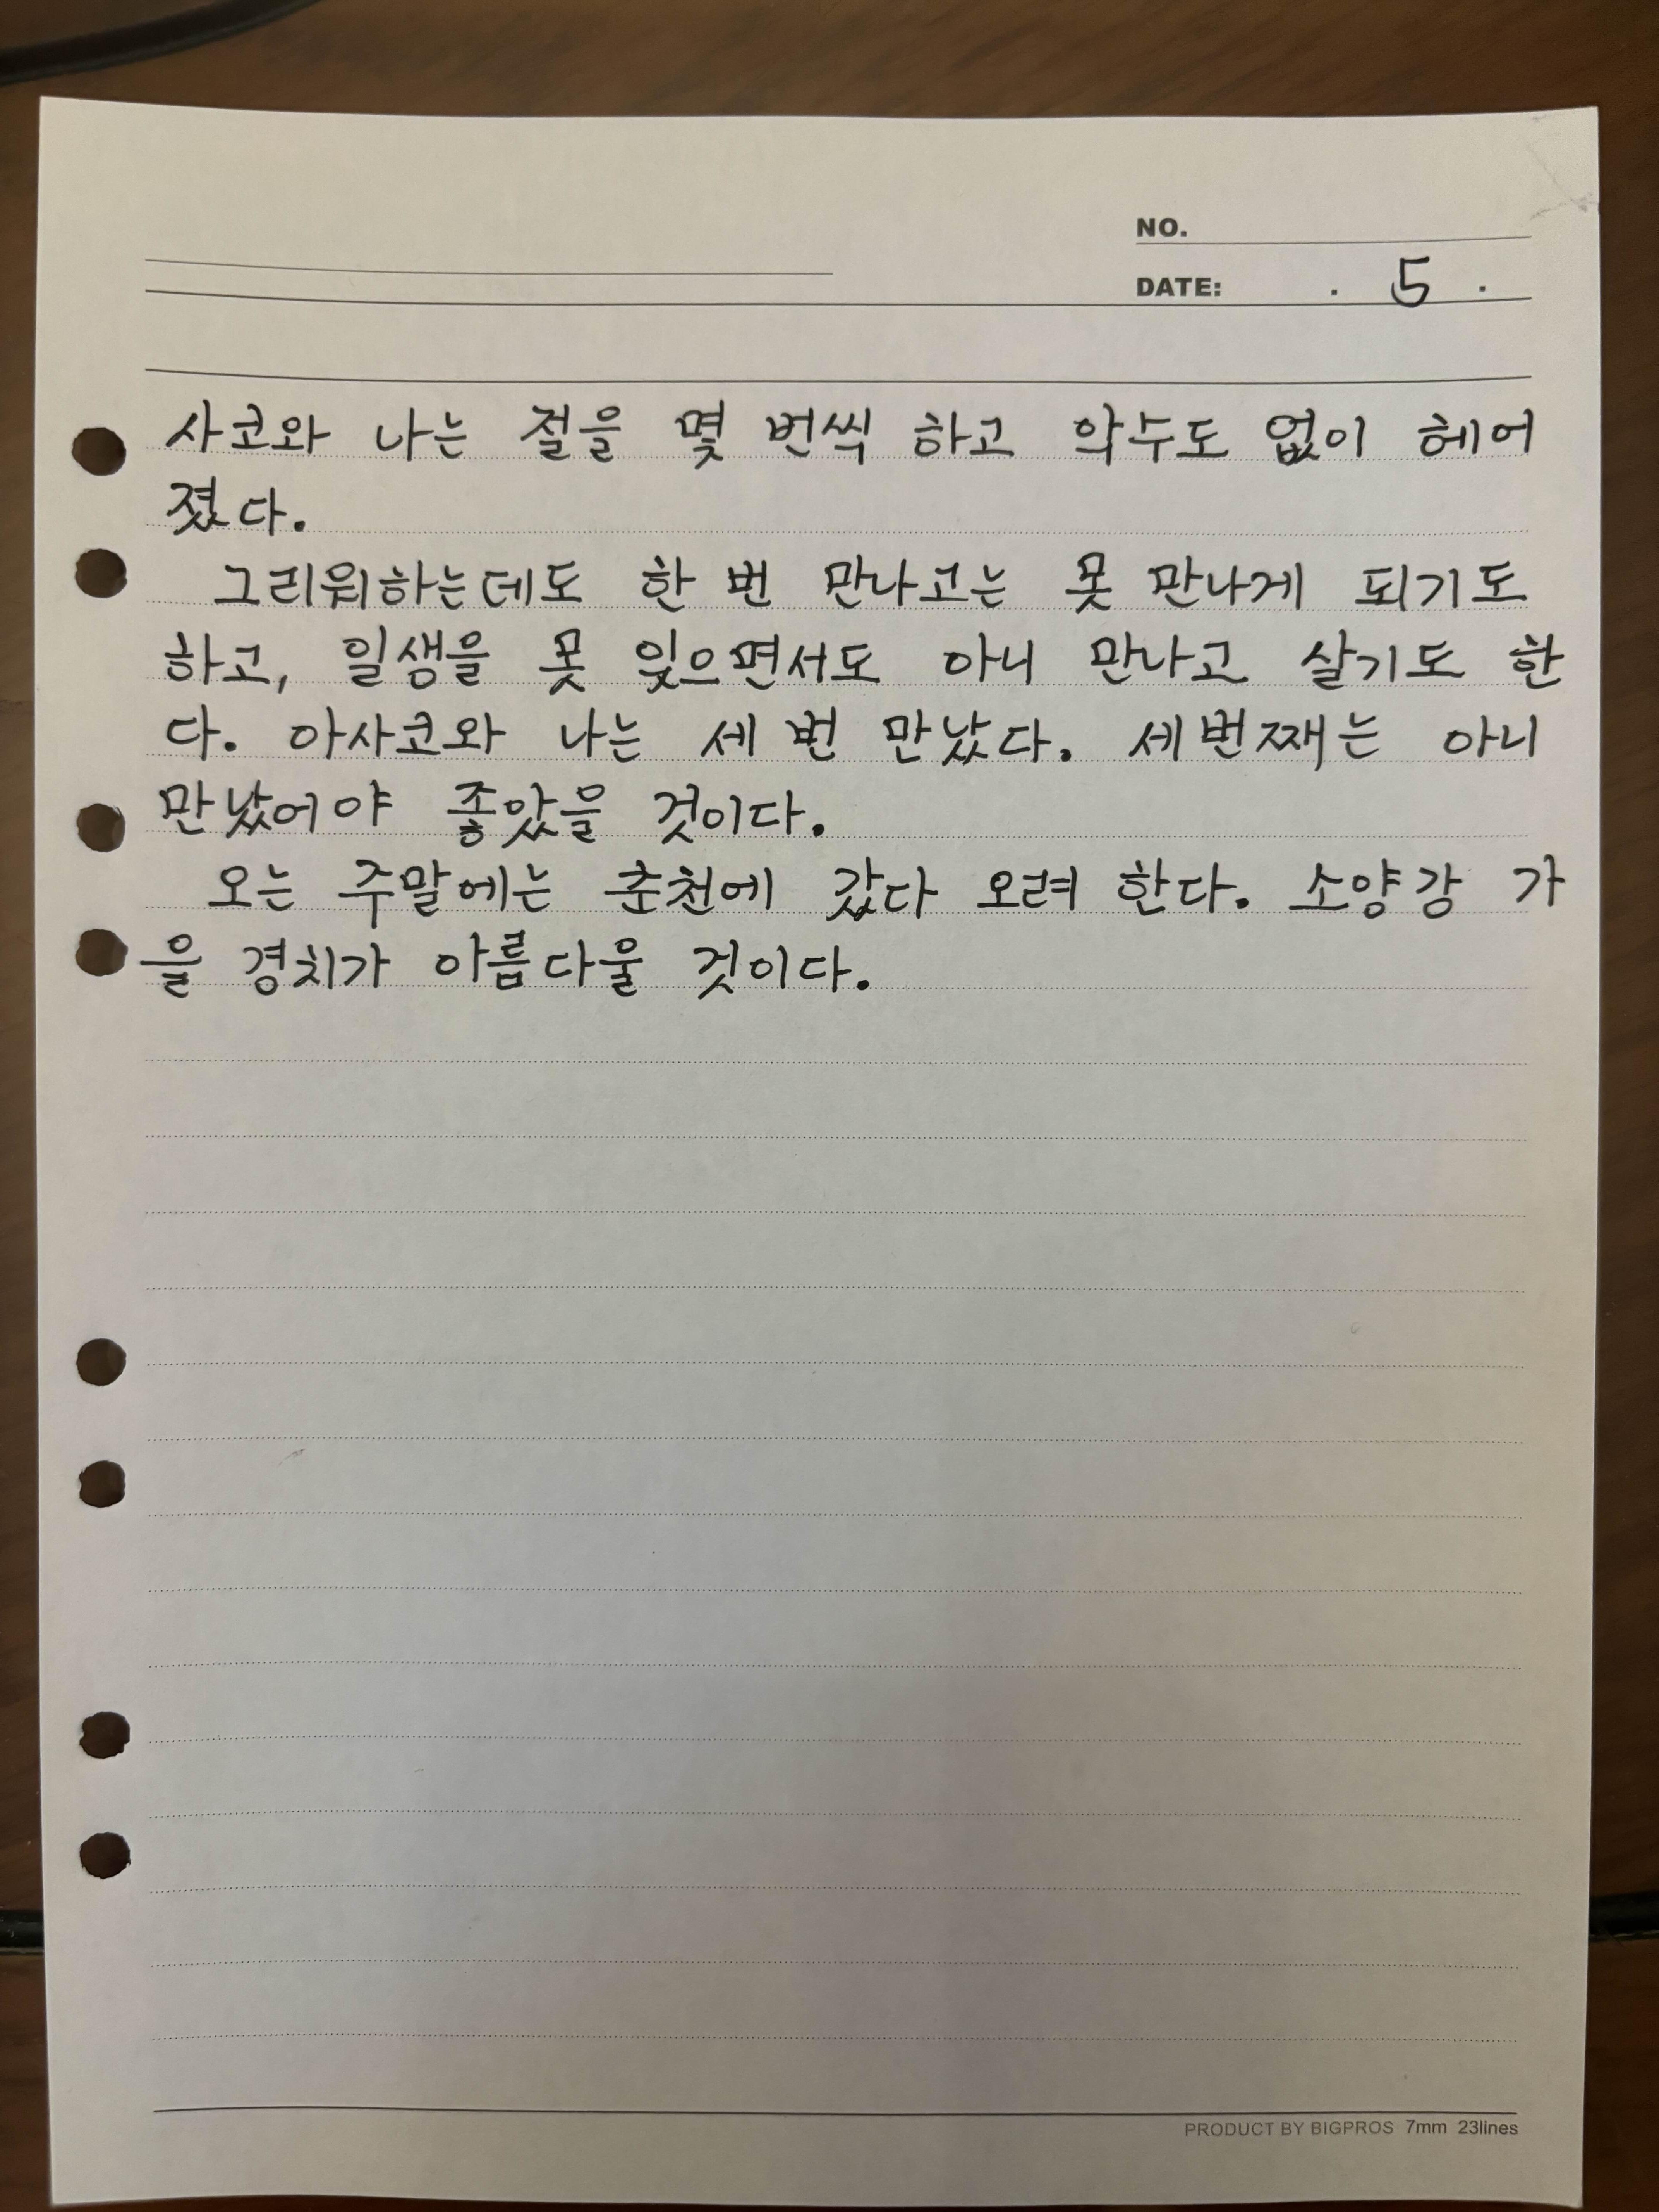 NO.
DATE: . 5 .
사코와 나는 절을 몇 번씩 하고 악수도 없이 헤어
졌다.
그리워하는데도 한 번 만나고는 못 만나게 되기도
하고, 일생을 못 잊으면서도 아니 만나고 살기도 한
다. 아사코와 나는 세 번 만났다. 세번째는 아니
만났어야 좋았을 것이다.
오는 주말에는 춘천에 갔다 오려 한다. 소양강 가
을 경치가 아름다울 것이다.
PRODUCT BY BIGPROS 7mm 23lines